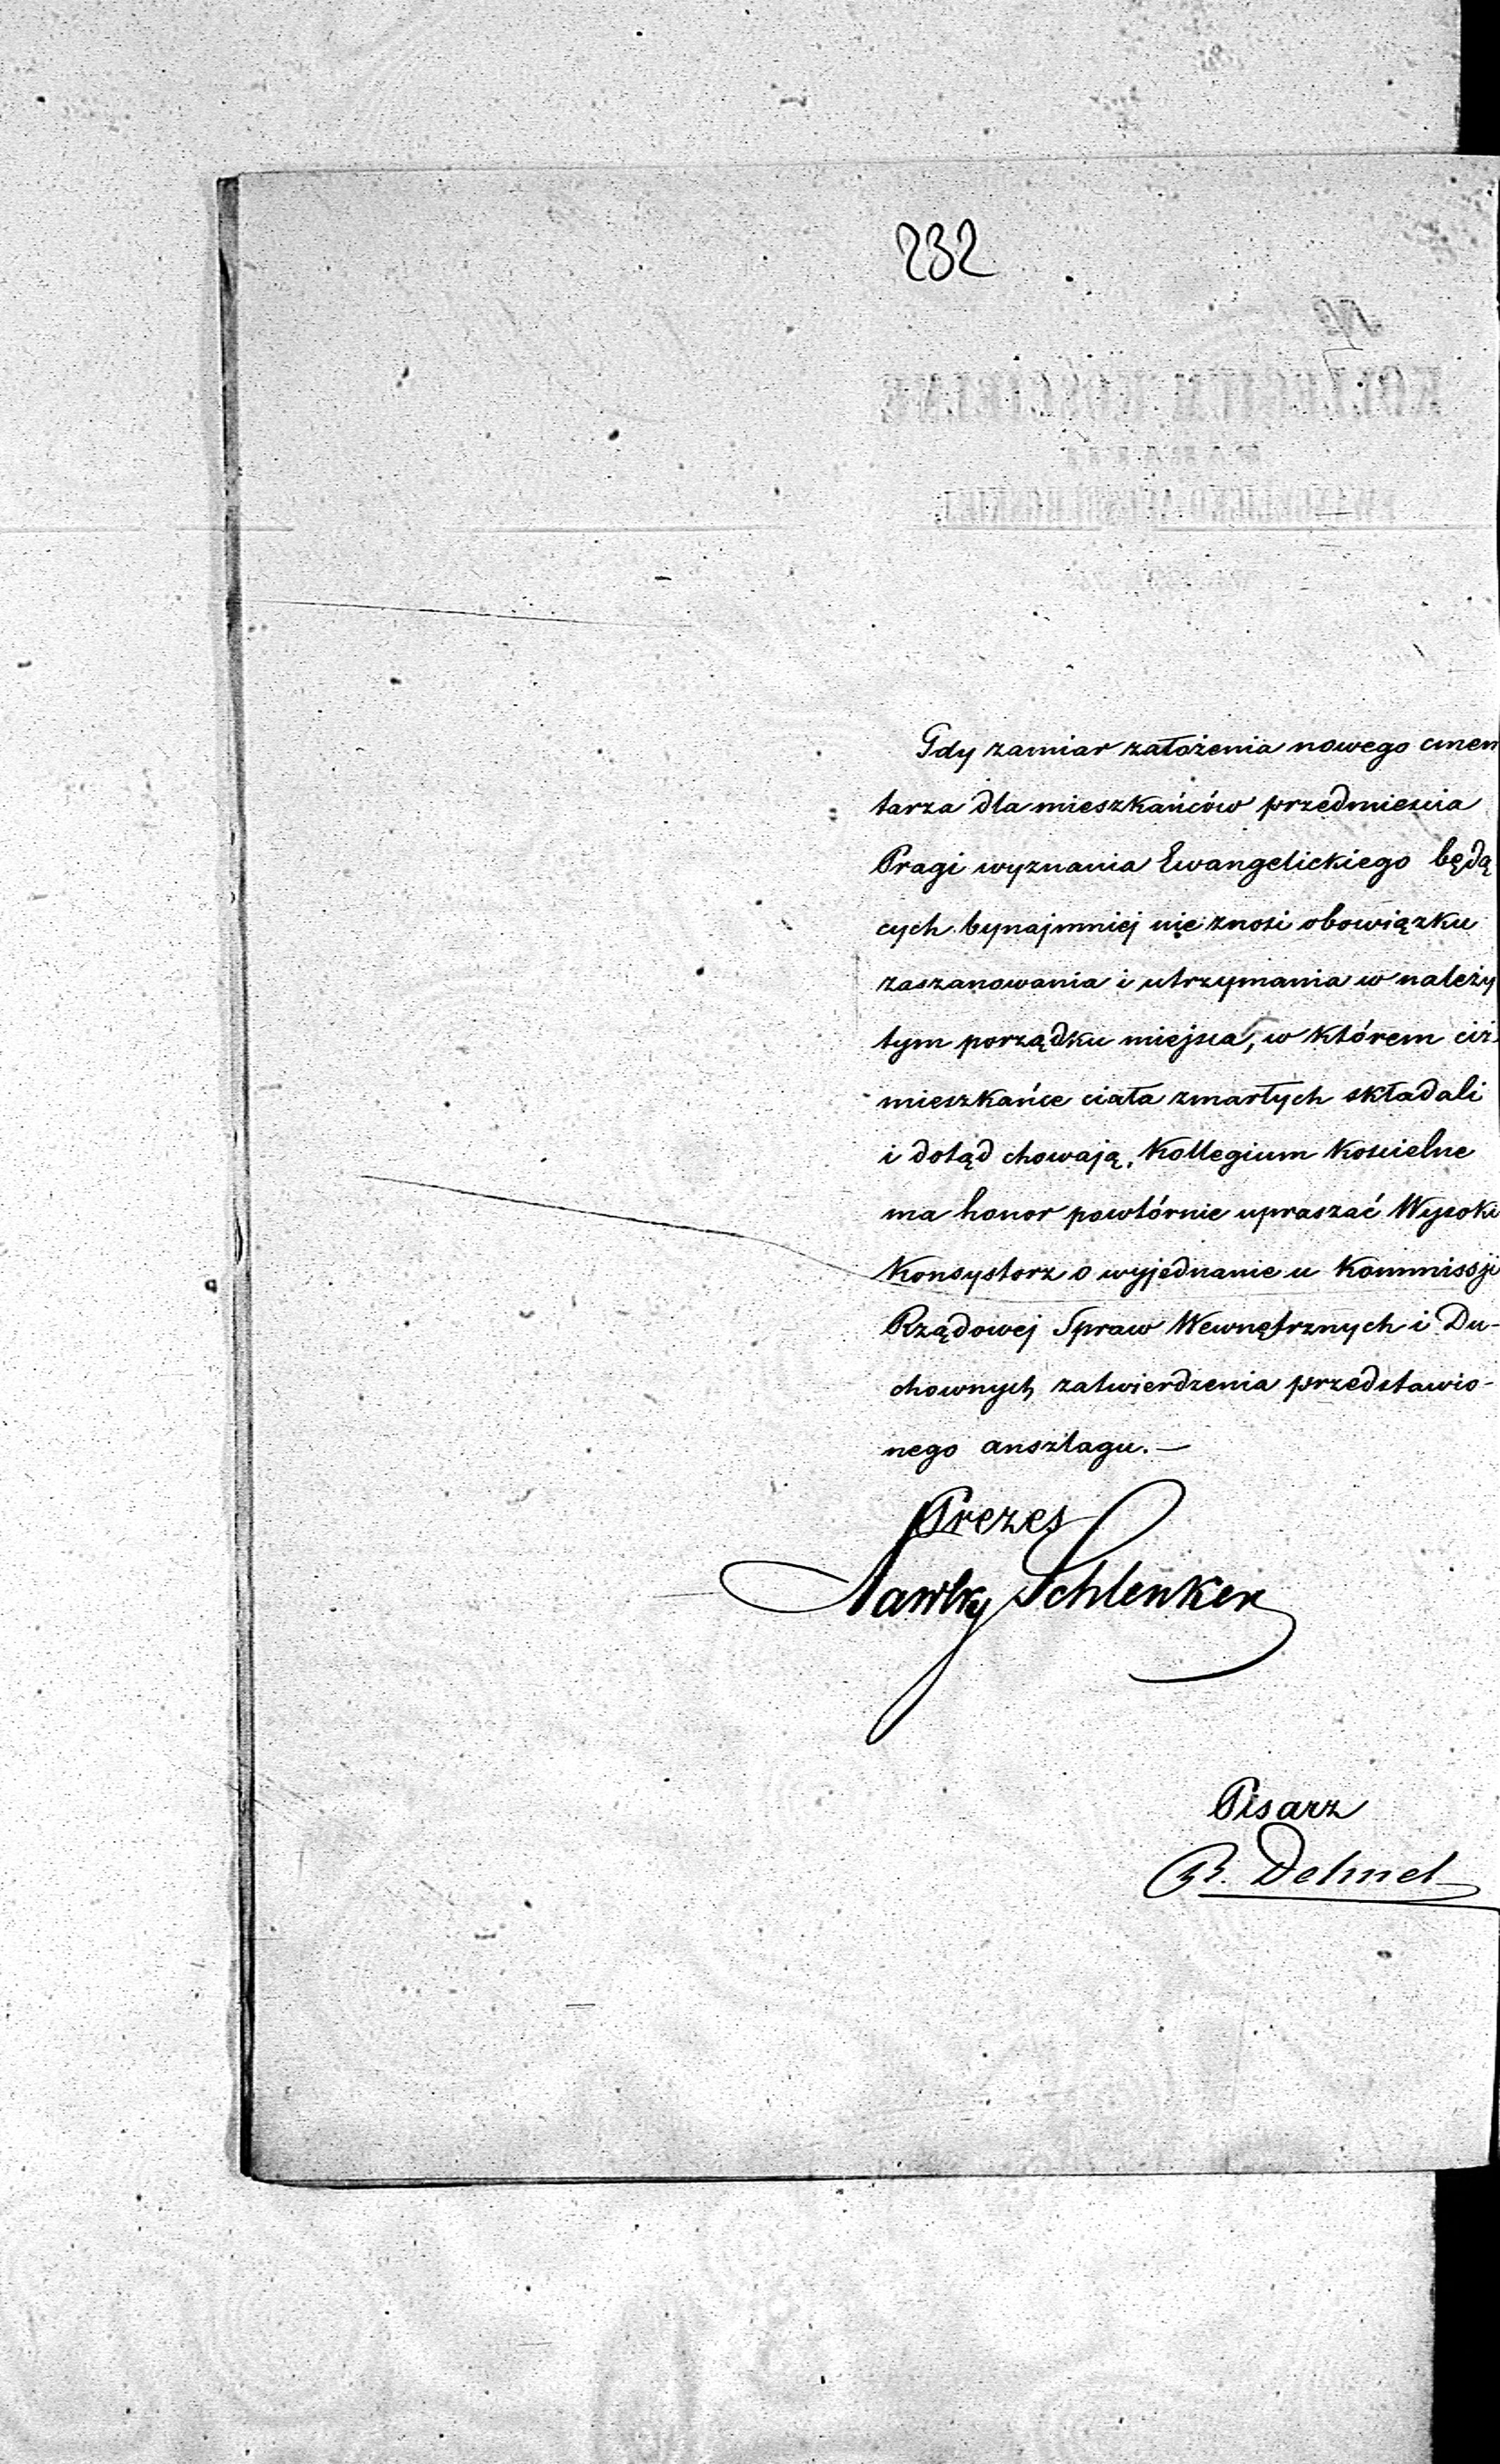 232
Gdy zamiar założenia nowego cmen
tarza dla mieszkańców przedmieścia
Pragi wyznania Ewangelickiego będą
cych bynajmniej nie znosi obowiązku
zaszanowania i utrzymania w należy
tym porządku miejsca, w którem ciż
mieszkańce ciała zmarłych składali
i dotąd chowają, Kollegium Kościelne
ma honor powtórnie upraszać Wysoki
Konsystorz o wyjednanie u Kommissji
Rządowej Spraw Wewnętrznych i Du-
chownych zatwierdzenia przedstawio-
nego anszlagu. —
Prezes
Schlenker
Pisarz
Dehnel